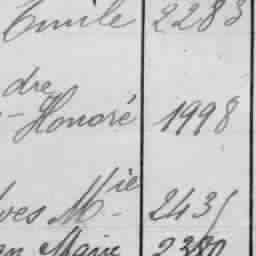 Emile 2283
dre
-Honoré 1998
ves Mie 2435
an Marie 2380